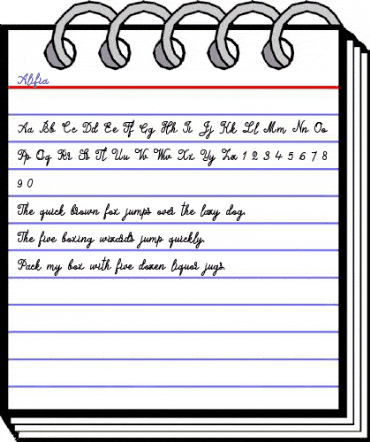 Alfia
Aa Bb Cc Dd Ee Ff Gg Hh Ii Jj Kk Ll Mm Nn Oo
Pp Qq Rr Ss Tt Uu Vv Ww Xx Yy Zz 1 2 3 4 5 6 7 8
9 0
The quick brown fox jumps over the lazy dog.
The five boxing wizards jump quickly.
Pack my box with five dozen liquor jugs.